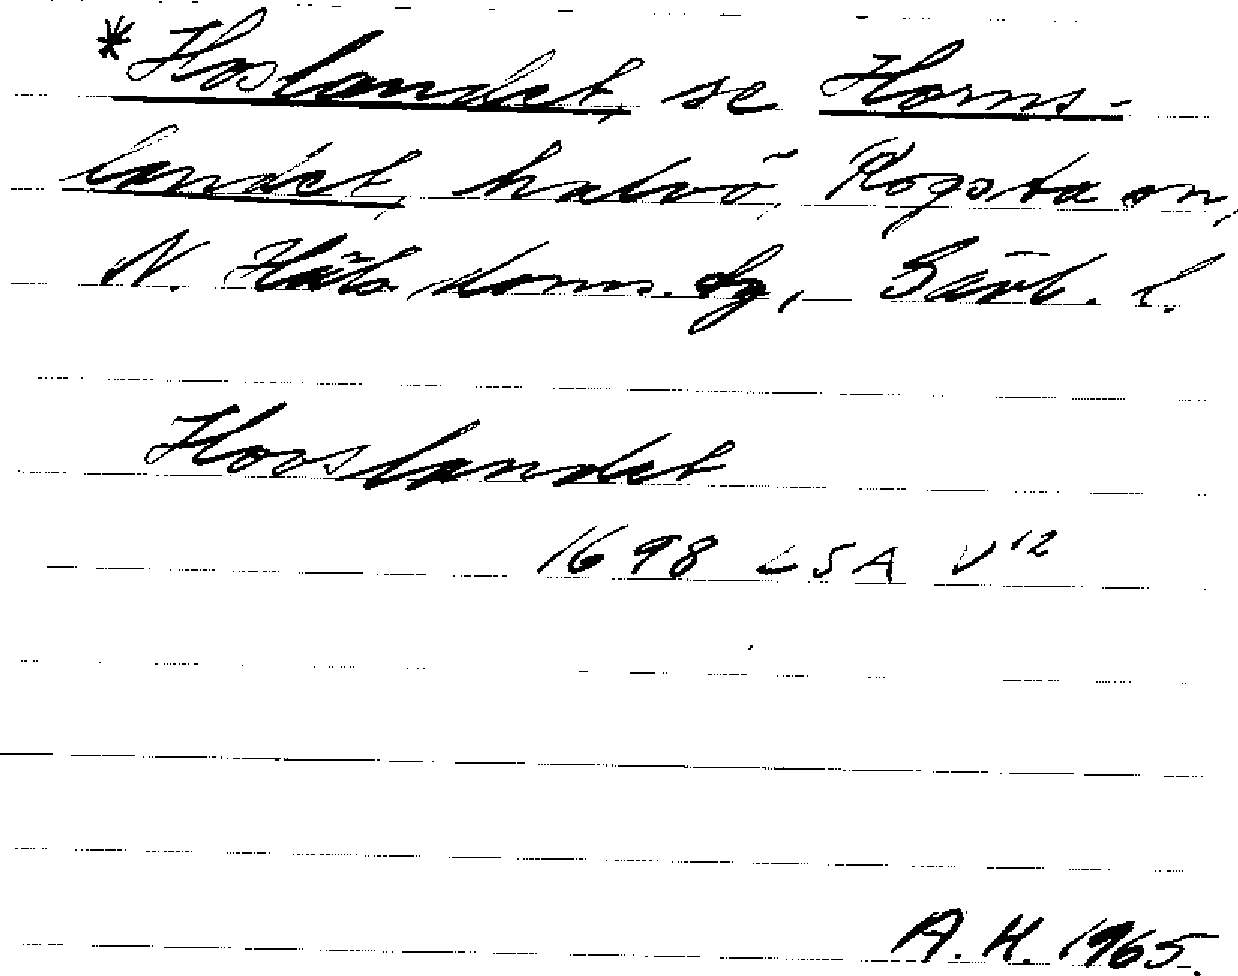 *Hoslandet, se Horns-
landet, halvö, Rogsta sn,
N. Häls. doms. tg, Gävb. l.
Hooslandet
1698 LSA V 12
A. H. 1965.